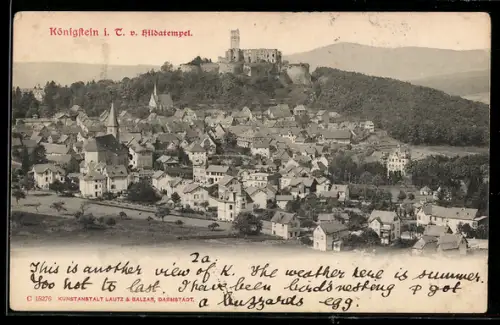 Königstein i. T. v. Hildatempel.
2a
This is another view of K. The weather here is summer.
Too hot to last. I have been birdsnesting & got
C 15276 KUNSTANSTALT LAUTZ & BALZAR, DARMSTADT.
a buzzards egg.